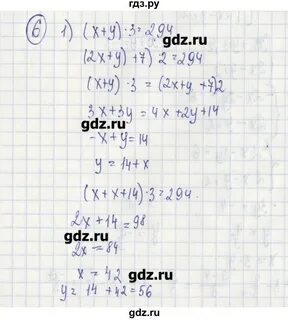 гдз.ру
6 1) (x+y)·3=294
(2x+y)+7)·2=294
(x+y)·3=(2x+y+7)2
3x+3y=4x+2y+14
-x+y=14
y=14+x
(x+x+14)·3=294.
2x+14=98
2x=84
x=42
y=14+42=56
gdz.ru
gdz.ru
gdz.ru
gdz.ru
gdz.ru
gdz.ru